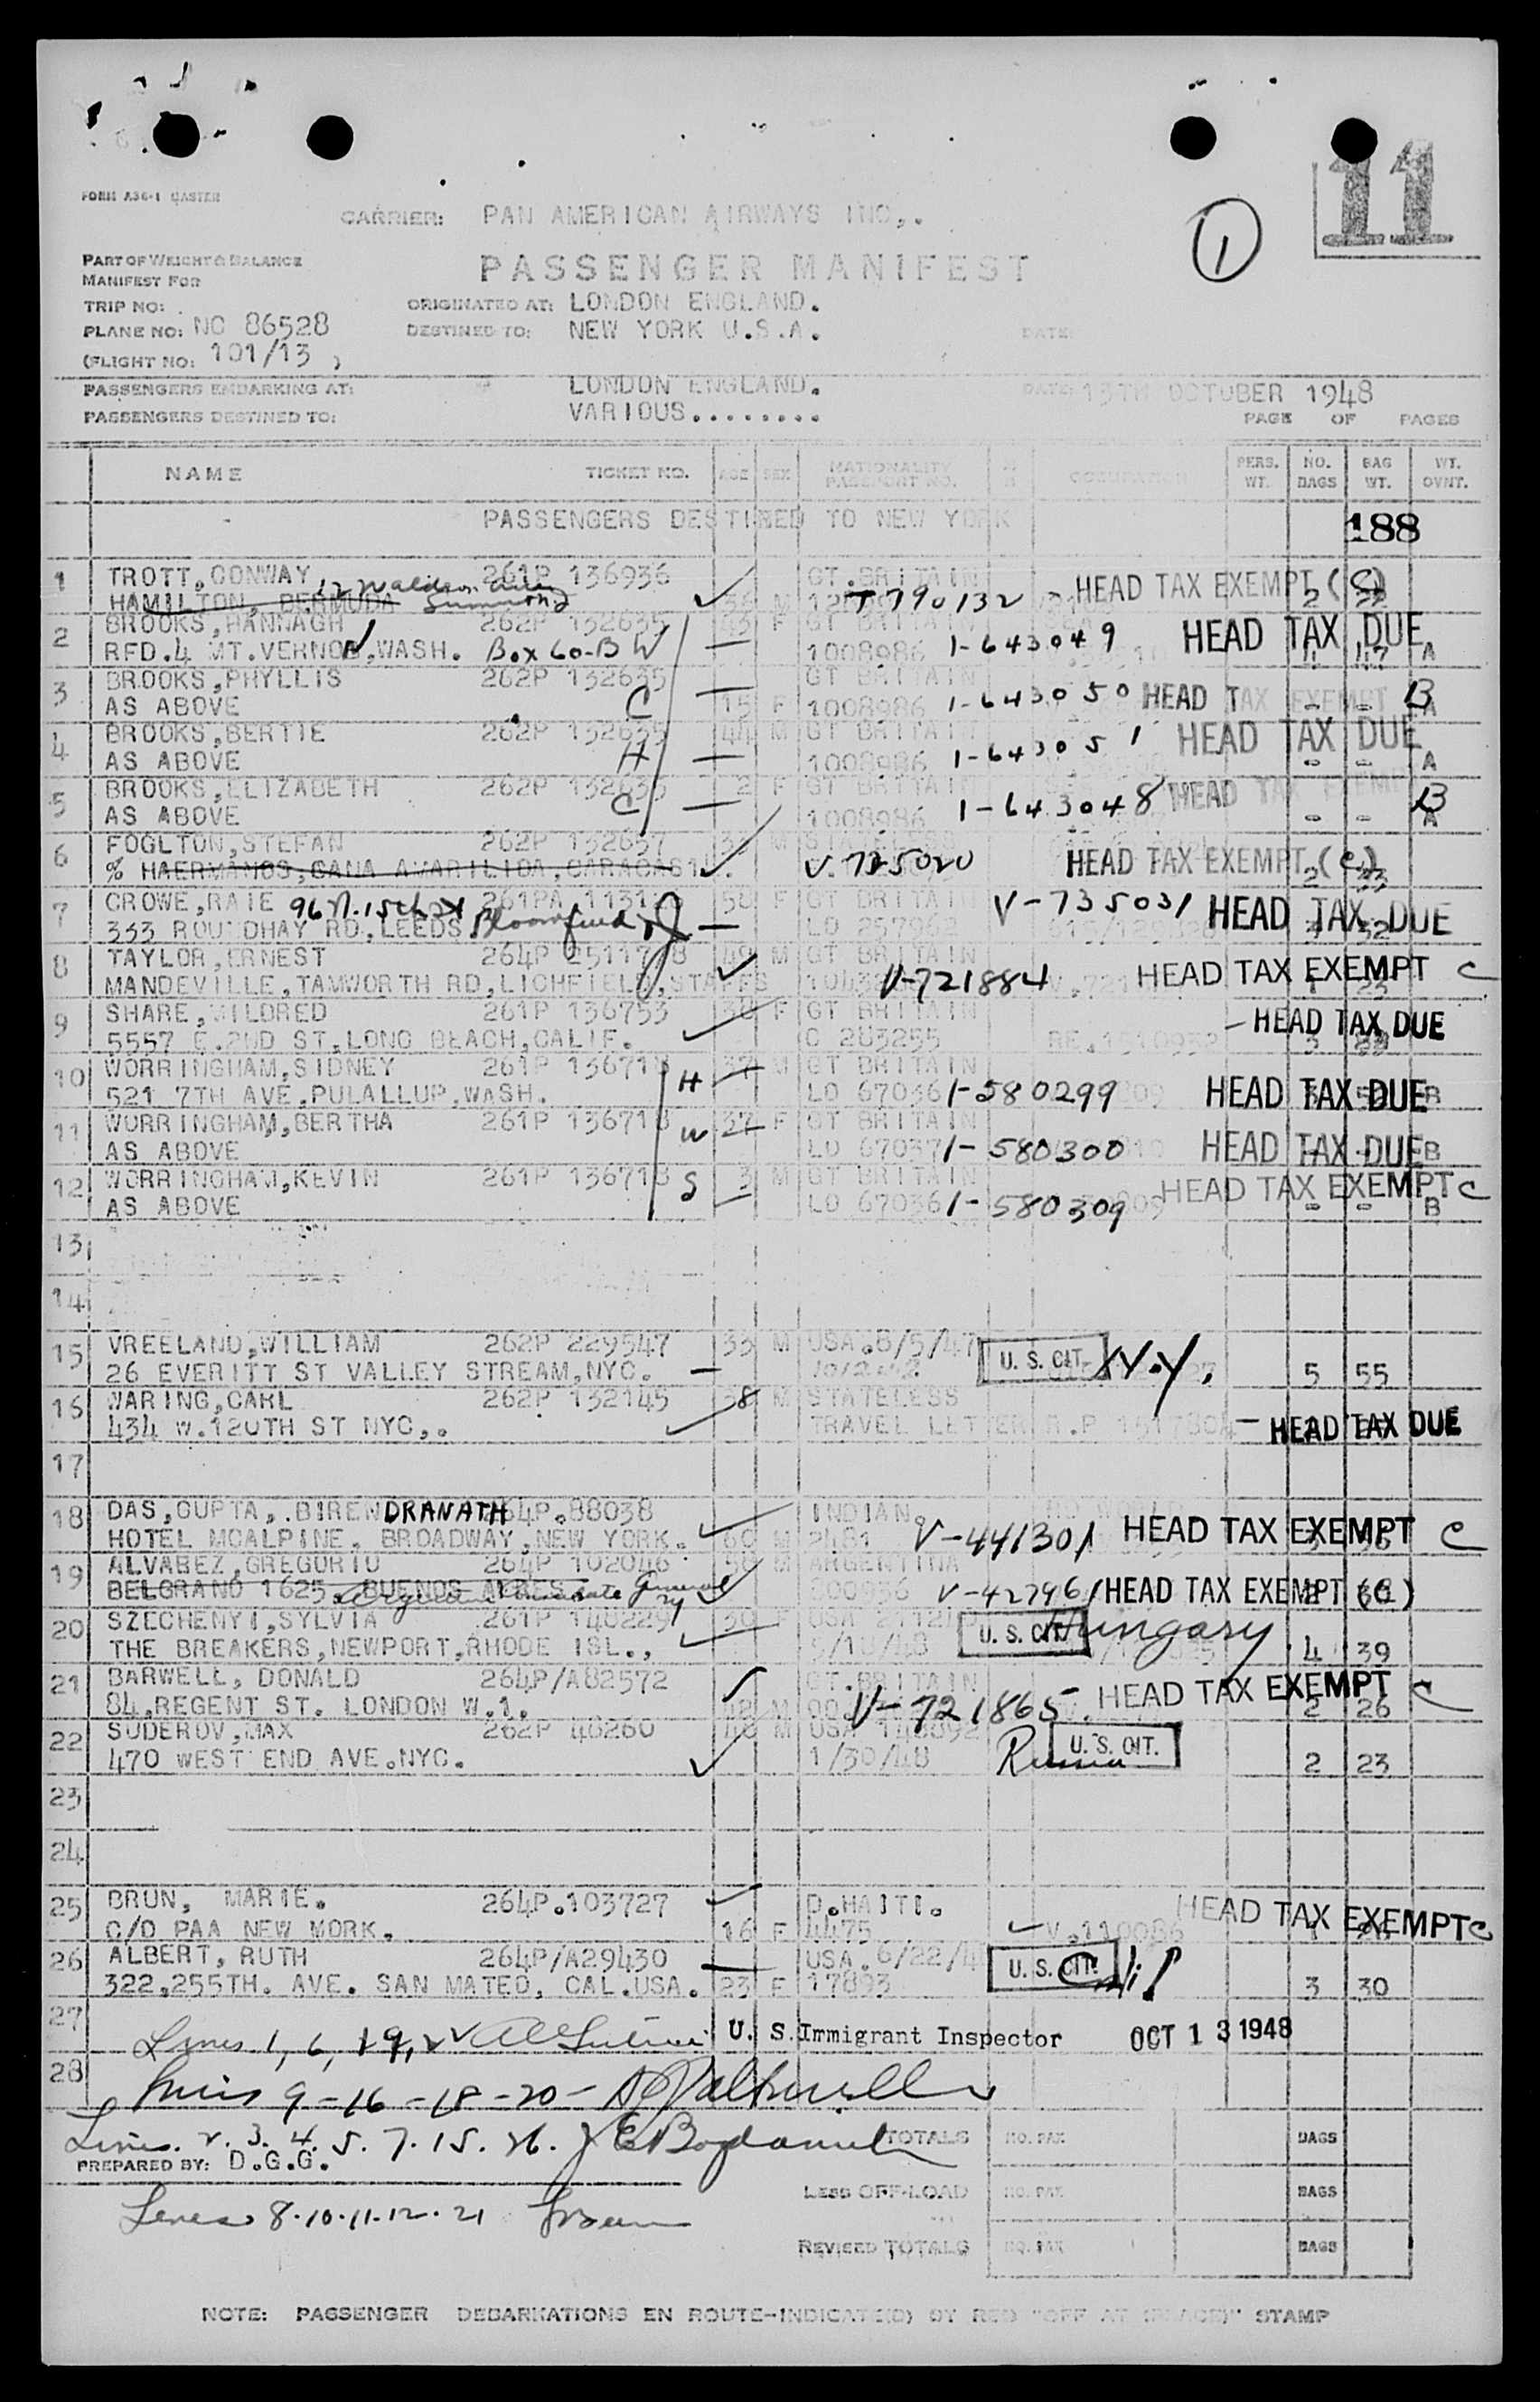 11
FORM A36-1 MASTER
CARRIER: PAN AMERICAN AIRWAYS INC,.
1
PART OF WEIGHT & BALANCE
MANIFEST FOR
PASSENGER MANIFEST
TRIP NO:
ORIGINATED AT: LONDON ENGLAND.
PLANE NO: NC 86528
DESTINED TO: NEW YORK U.S.A.
DATE:
(FLIGHT NO: 101/13 )
PASSENGERS EMBARKING AT: LONDON ENGLAND. DATE: 13TH OCTOBER 1948
PASSENGERS DESTINED TO: VARIOUS........ PAGE OF PAGES
NAME TICKET NO. AGE SEX NATIONALITY PASSPORT NO. OCCUPATION PERS. WT. NO. BAGS BAG WT. WT. OVNT.
PASSENGERS DESTINED TO NEW YORK 188
1 TROTT,CONWAY 261P 136936 GT.BRITAIN HEAD TAX EXEMPT (C)
HAMILTON, BERMUDA M T-790132 2
2 BROOKS,HANNAGH 262P 132635 43 F GT BRITAIN HEAD TAX DUE
RFD.4 MT.VERNON,WASH. Box 60-B W 1008986 1-643049 A
3 BROOKS,PHYLLIS 262P 132635 GT BRITAIN
AS ABOVE C 15 F 1008986 1-643050 HEAD TAX EXEMPT B - - A
4 BROOKS,BERTIE 262P 132635 44 M GT BRITAIN HEAD TAX DUE
AS ABOVE H 1008986 1-643051 - - A
5 BROOKS,ELIZABETH 262P 132635 2 F GT BRITAIN HEAD TAX EXEMPT B
AS ABOVE C 1008986 1-643048 - - A
6 FOGLTON,STEFAN 262P 132637 M
% HAERMANOS,CANA AMARILIDA,CARACAS V-725020 HEAD TAX EXEMPT (C) 2 33
7 CROWE,RAIE 96 N. 15th St 261PA 58 F GT BRITAIN V-735031 HEAD TAX DUE
333 ROUNDHAY RD.,LEEDS Bloomfield NJ LO 257962 52
8 TAYLOR,ERNEST 264P 49 M GT BRITAIN
MANDEVILLE,TAMWORTH RD,LICHFIELD,STAFFS V-721884 HEAD TAX EXEMPT C
9 SHARE,MILDRED 261P 136753 38 F GT BRITAIN HEAD TAX DUE
5557 E.2ND ST,LONG BEACH,CALIF. C 283255 RE.1510932 3
10 WORRINGHAM,SIDNEY 261P 136718 37 M GT BRITAIN
521 7TH AVE.PULALLUP,WASH. H LO 67036 1-580299 HEAD TAX DUE B
11 WORRINGHAM,BERTHA 261P 136718 37 F GT BRITAIN
AS ABOVE W LO 67037 1-580300 HEAD TAX DUE B
12 WORRINGHAM,KEVIN 261P 136718 3 M GT BRITAIN HEAD TAX EXEMPT C
AS ABOVE S LO 67036 1-580309 - - B
13
14
15 VREELAND,WILLIAM 262P 229547 33 M USA.8/5/47 U. S. CIT. N.Y.
26 EVERITT ST VALLEY STREAM,NYC. 5 55
16 WARING,CARL 262P 132145 38 M STATELESS
434 W.120TH ST NYC,. TRAVEL LETTER R.P 1517804 HEAD TAX DUE
17
18 DAS,GUPTA,.BIRENDRANATH 264P.88038 INDIAN
HOTEL MCALPINE. BROADWAY,NEW YORK. 60 M 2481 V-441301 HEAD TAX EXEMPT C
19 ALVAREZ,GREGORIO 264P 102046 58 M ARGENTINA
BELGRANO 1625. BUENOS AIRES Consulate General NY V-427461 HEAD TAX EXEMPT (C)
20 SZECHENYI,SYLVIA 261P 140229 30 F USA U. S. CIT. Hungary
THE BREAKERS,NEWPORT,RHODE ISL., 5/10/48 4 39
21 BARWELL, DONALD 264P/A82572 GT.BRITAIN
84,REGENT ST. LONDON W.1. 42 M V-721865 HEAD TAX EXEMPT C 2 26
22 SUDEROV,MAX 262P 46260 48 M USA 148892 U. S. CIT.
470 WEST END AVE.NYC. 1/30/48 Russia 2 23
23
24
25 BRUN, MARIE. 264P.103727 D.HAITI. HEAD TAX EXEMPT C
C/O PAA NEW MORK. 16 F 4475 V.110086
26 ALBERT, RUTH 264P/A29430 USA.6/22/4 U. S. CIT. Calif
322,255TH. AVE. SAN MATEO, CAL.USA. 23 F 17893 3 30
27 Lines 1, 6, 19, 22 U. S. Immigrant Inspector OCT 13 1948
28 Lines 9-16-18-20-
Lines. 2. 3. 4. 5. 7. 15. 26. TOTALS NO. PAX BAGS
PREPARED BY: D.G.G.
LESS OFF-LOAD NO. PAX BAGS
Lines 8.10.11.12.21
REVISED TOTALS NO. PAX BAGS
NOTE: PASSENGER DEBARKATIONS EN ROUTE-INDICATE(D) BY RED "OFF AT (PLACE)" STAMP